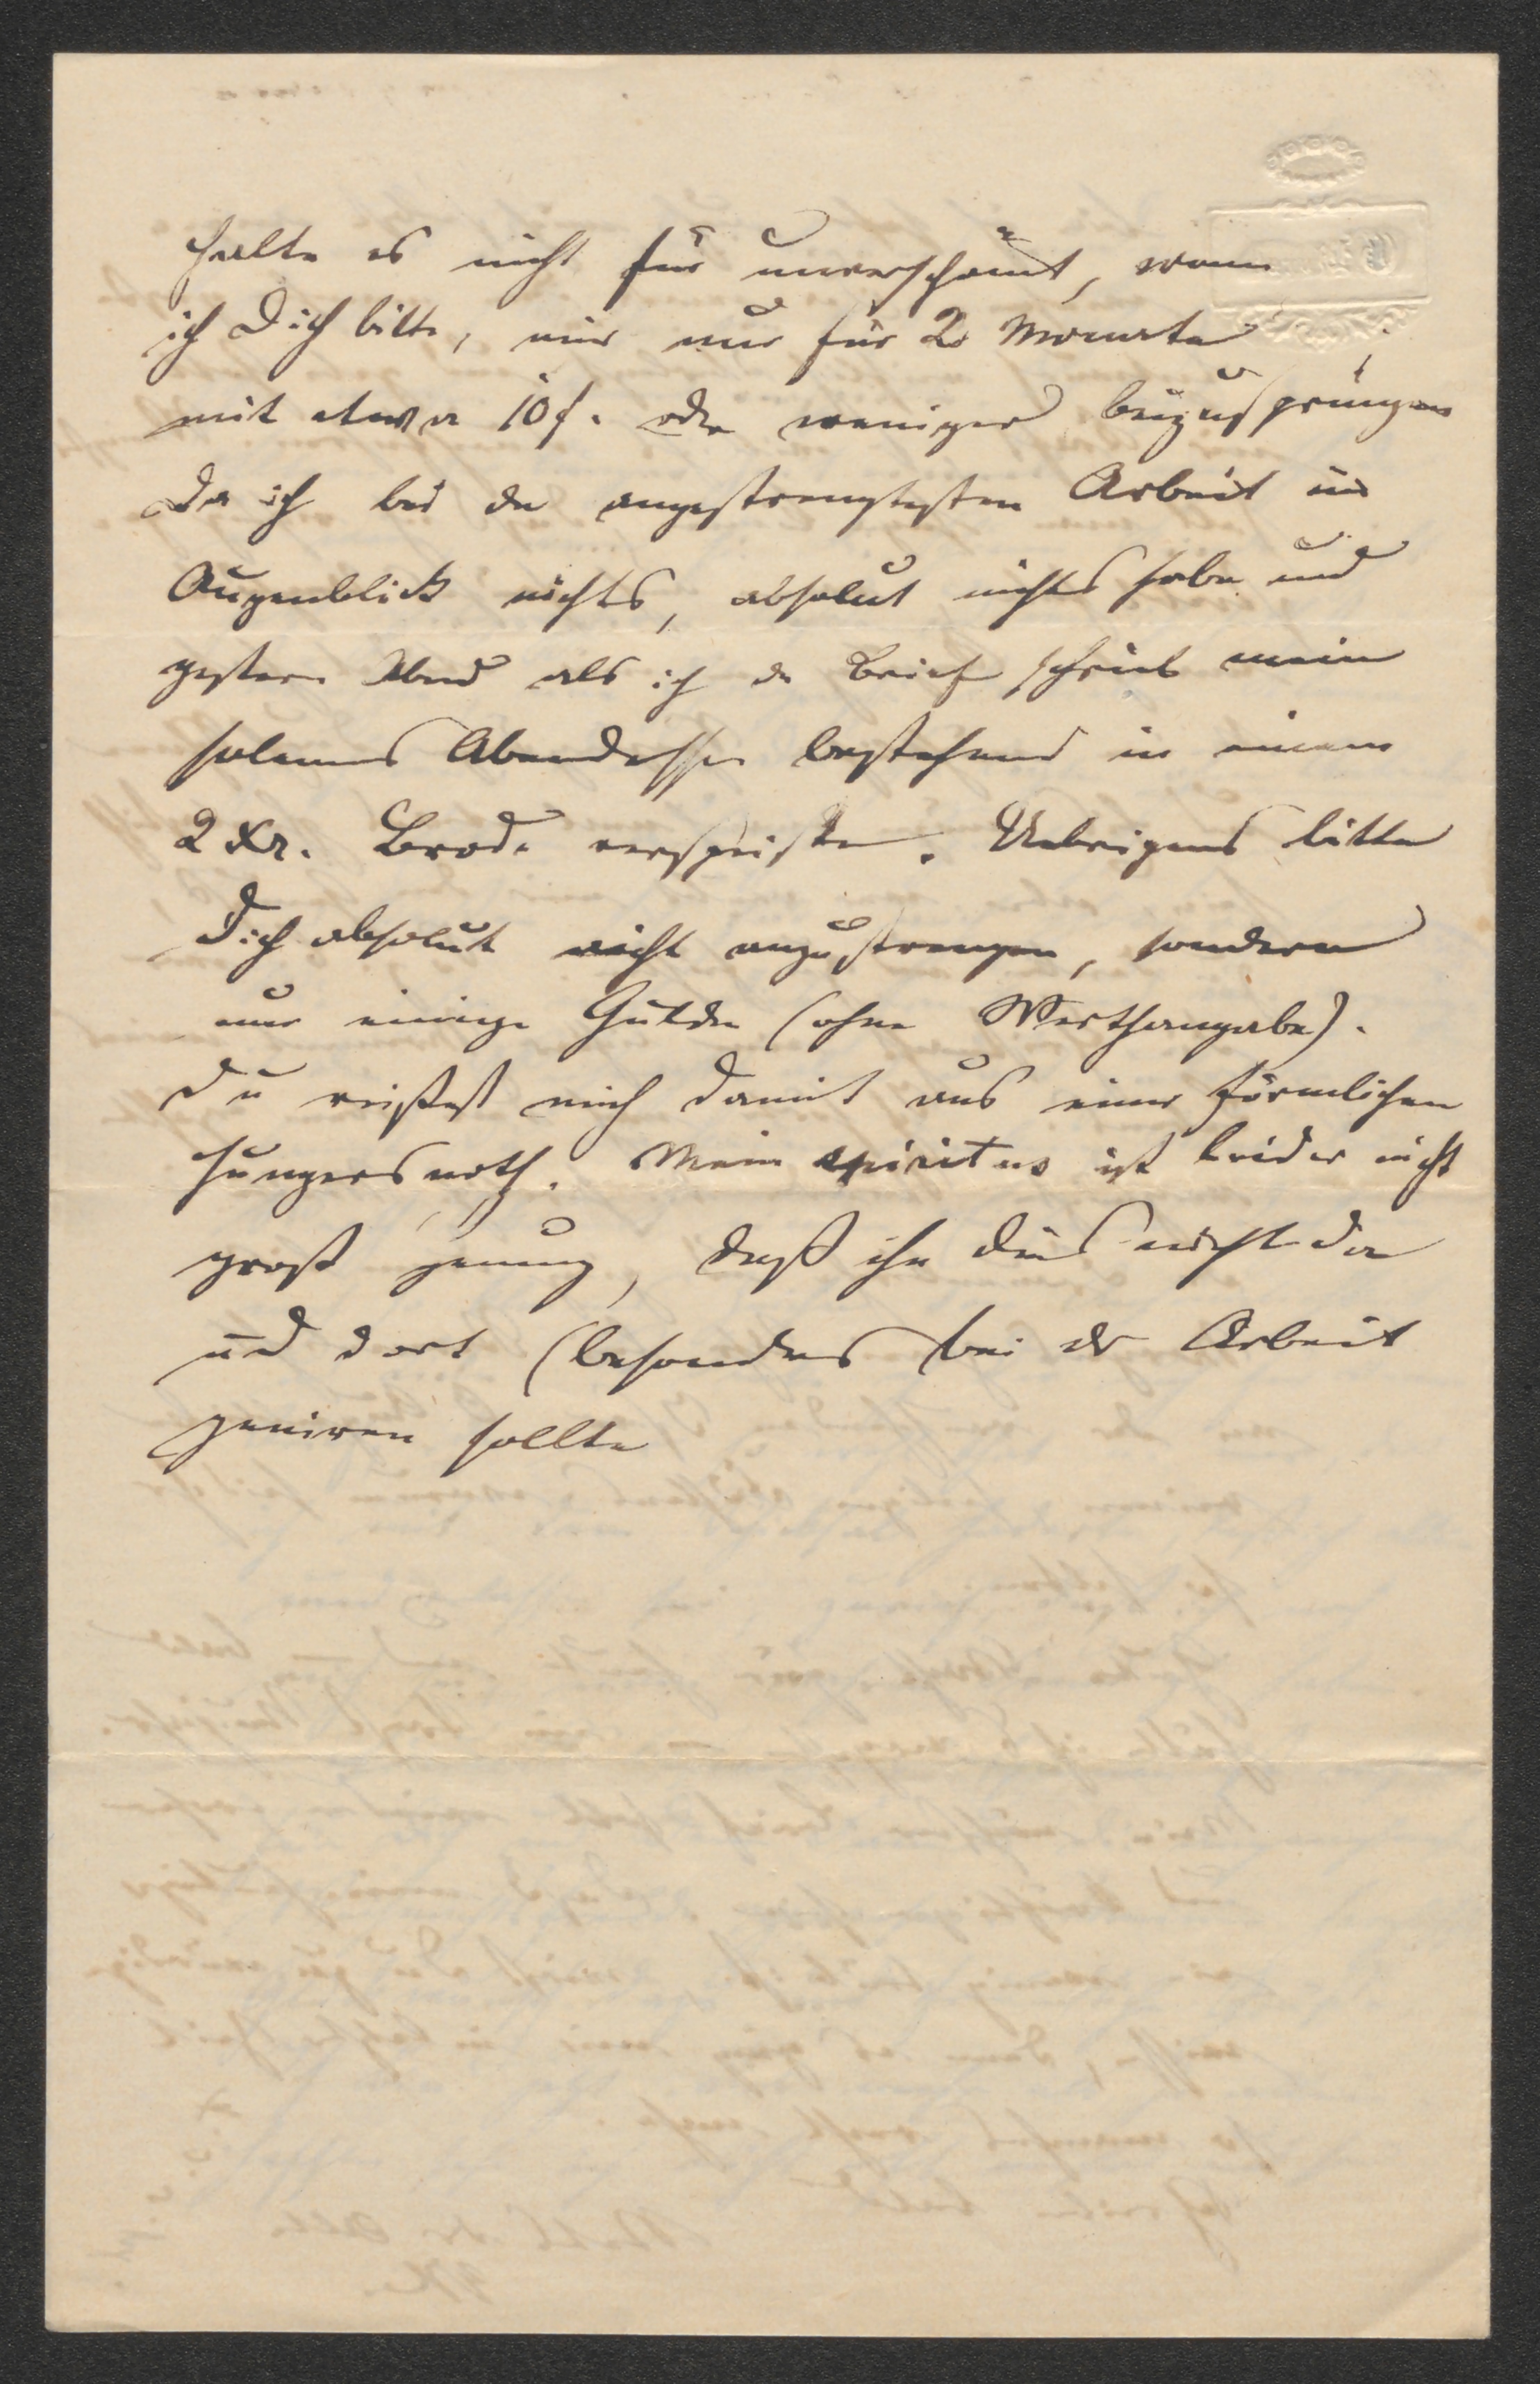 halte es nicht für unverschämt, wenn
ich Dich bitte, mir nur für 2 Monate
mit etwa 10 f. oder weniger beizuspringen
Da ich bei der angestrengtesten Arbeit im
Augenblick nichts, absolut nichts habe und
gestern Abend als ich den Brief schrieb mein
solennes Abendessen bestehend in einem
2 Xr. Brode verspeiste. Uebrigens bitte
Dich absolut nicht anzustrengen, sondern
nur einige Gulden (ohne Werthangabe).
Du reißest mich damit aus einer förmlichen
Hungersnoth. Mein spiritus ist leider nicht
groß genug, daß ihn dies nicht da
und dort (besonders bei der Arbeit
geniren sollte